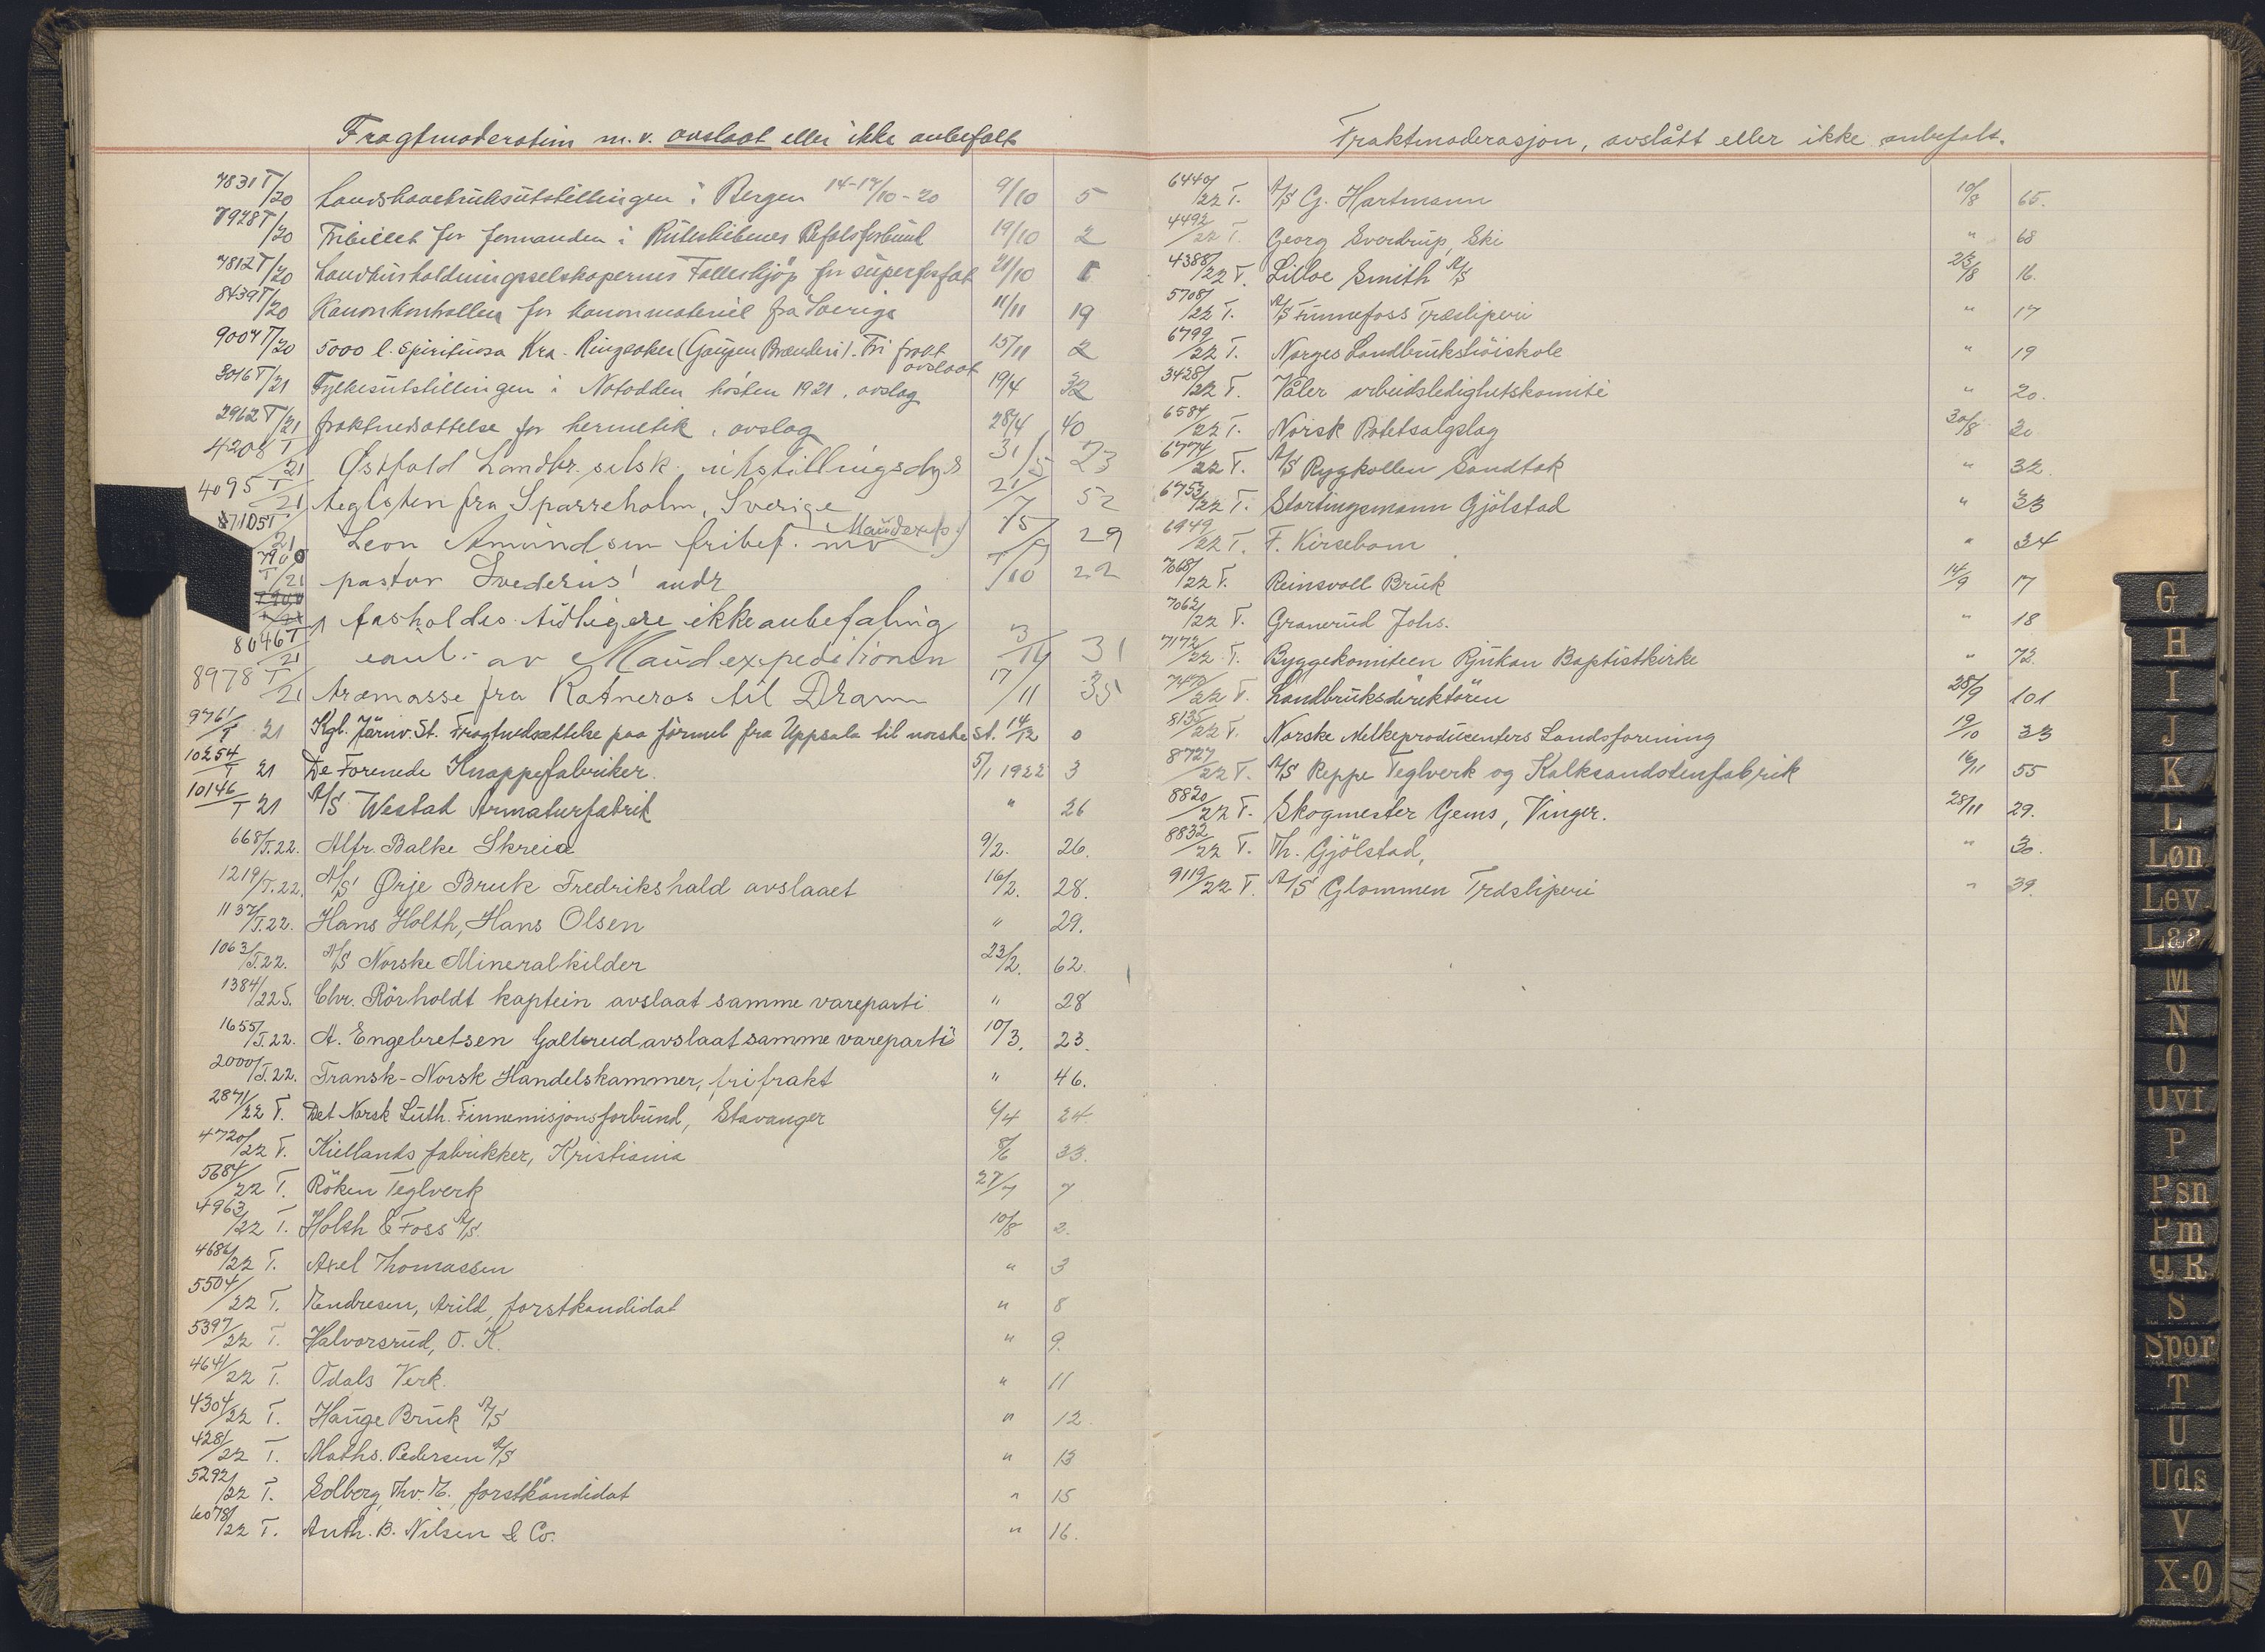 Fragtmoderation m.v. avslaat eller ikke anbefalt
7831 T/20 Landshavebruksutstillingen i Bergen 14-17/10-20 9/10 5
7928 T/20 Fribillet for formanden i Rutebilenes 19/10 2
7812 T/20 Landhusholdningsselskapernes Fælleskjöp for superfosfat 21/10 1
8439 T/20 Kanonkontrollen for kanonmateriel fra Sverige 11/11 19
9007 T/20 5000 l. spirituosa Kra.-Ringsaker (Gaupen Brænderi). Fri frakt avslaat 15/11 2
3016 T/21 Fylkesutstillingen i Notodden hösten 1921, avslag 19/4 32
2962 T/21 fraktnedsættelse for hermetik, avslag 28/4 40
4208 T/21 Østfold Landbr. selsk. utstillingsdyr 31/5 23
4095 T/21 teglsten fra Sparreholm, Sverige 21/7 52
7105 T/21 Leon Amundsen fribef. mv (Maudexp.) 15/9 29
7900 T/21 pastor Svedenius' andr /10 22
8046 T/21 fastholdes tidligere ikkeanbefaling
eanl. av Maudexpeditionen 3/11 31
8978 T/21 træmasse fra Rotneros til Dramn 17/11 35
9761/T 21 Kgl. Järnv. St. Fragtnedsættelse paa förmel fra Uppsala til norske st. 14/12 0
10254/T 21 De Forenede Knappefabriker. 5/1 1922 3
10146/T 21 A/S Westad Armaturfabrik " 26
668/T.22. Alfr. Balke Skreia 9/2. 26.
1219/T.22. A/S Ørje Bruk Fredrikshald avslaaet 16/2. 28.
1137/T.22. Hans Holth, Hans Olsen " 29.
1063/T.22. A/S Norske Mineralkilder 23/2. 62.
1384/22 T. Chr. Rörholdt kaptein avslaat samme vareparti " 28
1655/T.22. A. Engebretsen Galterud avslaat samme vareparti 10/3. 23.
2000/T.22. Fransk-Norsk Handelskammer, fri frakt " 46.
2871/22 T. Det Norsk Luth. Finnemisjonsforbund, Stavanger 6/4 24
4720/22 T. Kiellands fabrikker, Kristiania 8/6 33.
5684/22 T. Röken Teglverk 27/7 7
4963/22 T. Holth & Foss A/S. 10/8 2.
4686/22 T. Axel Thomassen " 3
5504/22 T. Endresen, Arild, forstkandidat " 8
5397/22 T. Halvorsrud, O. K. " 9.
4641/22 T. Odals Verk. " 11
4304/22 T. Hauge Bruk A/S " 12.
4281/22 T. Maths. Pedersen A/S " 13
5292/22 T. Solberg, Thv. E., forstkandidat " 15
6078/22 T. Anth. B. Nilsen & Co. " 16.
Fraktmoderasjon, avslått eller ikke anbefalt.
6440/22 T. A/S G. Hartmann 10/8 65.
4492/22 T. Georg Sverdrup, Ski " 68
4388/22 T. Lilloe Smith A/S 23/8 16.
5708/22 T. A/S Funnefoss Træsliperi " 17
6799/22 T. Norges Landbrukshöiskole " 19
3428/22 T. Våler arbeidsledighetskomité " 20.
6584/22 T. Norsk Potetsalgslag 30/8 30
6774/22 T. A/S Rygkollen Sandtak " 32.
6753/22 T. Stortingsmann Gjölstad " 33
6949/22 T. F. Kirsebom " 34
7068/22 T. Reinsvoll Bruk 14/9 17
7062/22 T. Granerud Johs. " 18
7172/22 T. Byggekomiteen Rjukan Baptistkirke " 72.
22 T. Landbruksdirektören 28/9 101
8135/22 T. Norske Melkeproducenters Landsforening 19/10 33
8727/22 T. A/S Reppe Teglverk og Kalksandstenfabrik 16/11 55
8820/22 T. Skogmester Gems, Vinger. 28/11 29.
8832/22 T. Th. Gjölstad, " 30.
9119/22 T. A/S Glommen Træsliperi " 39.
G
H
I
J
K
L
Løn
Lev.
Laa
M
N
O
Ovf
P
Psn
Pm
Q R
S
Spor
T
U
Uds
V
X-Ø